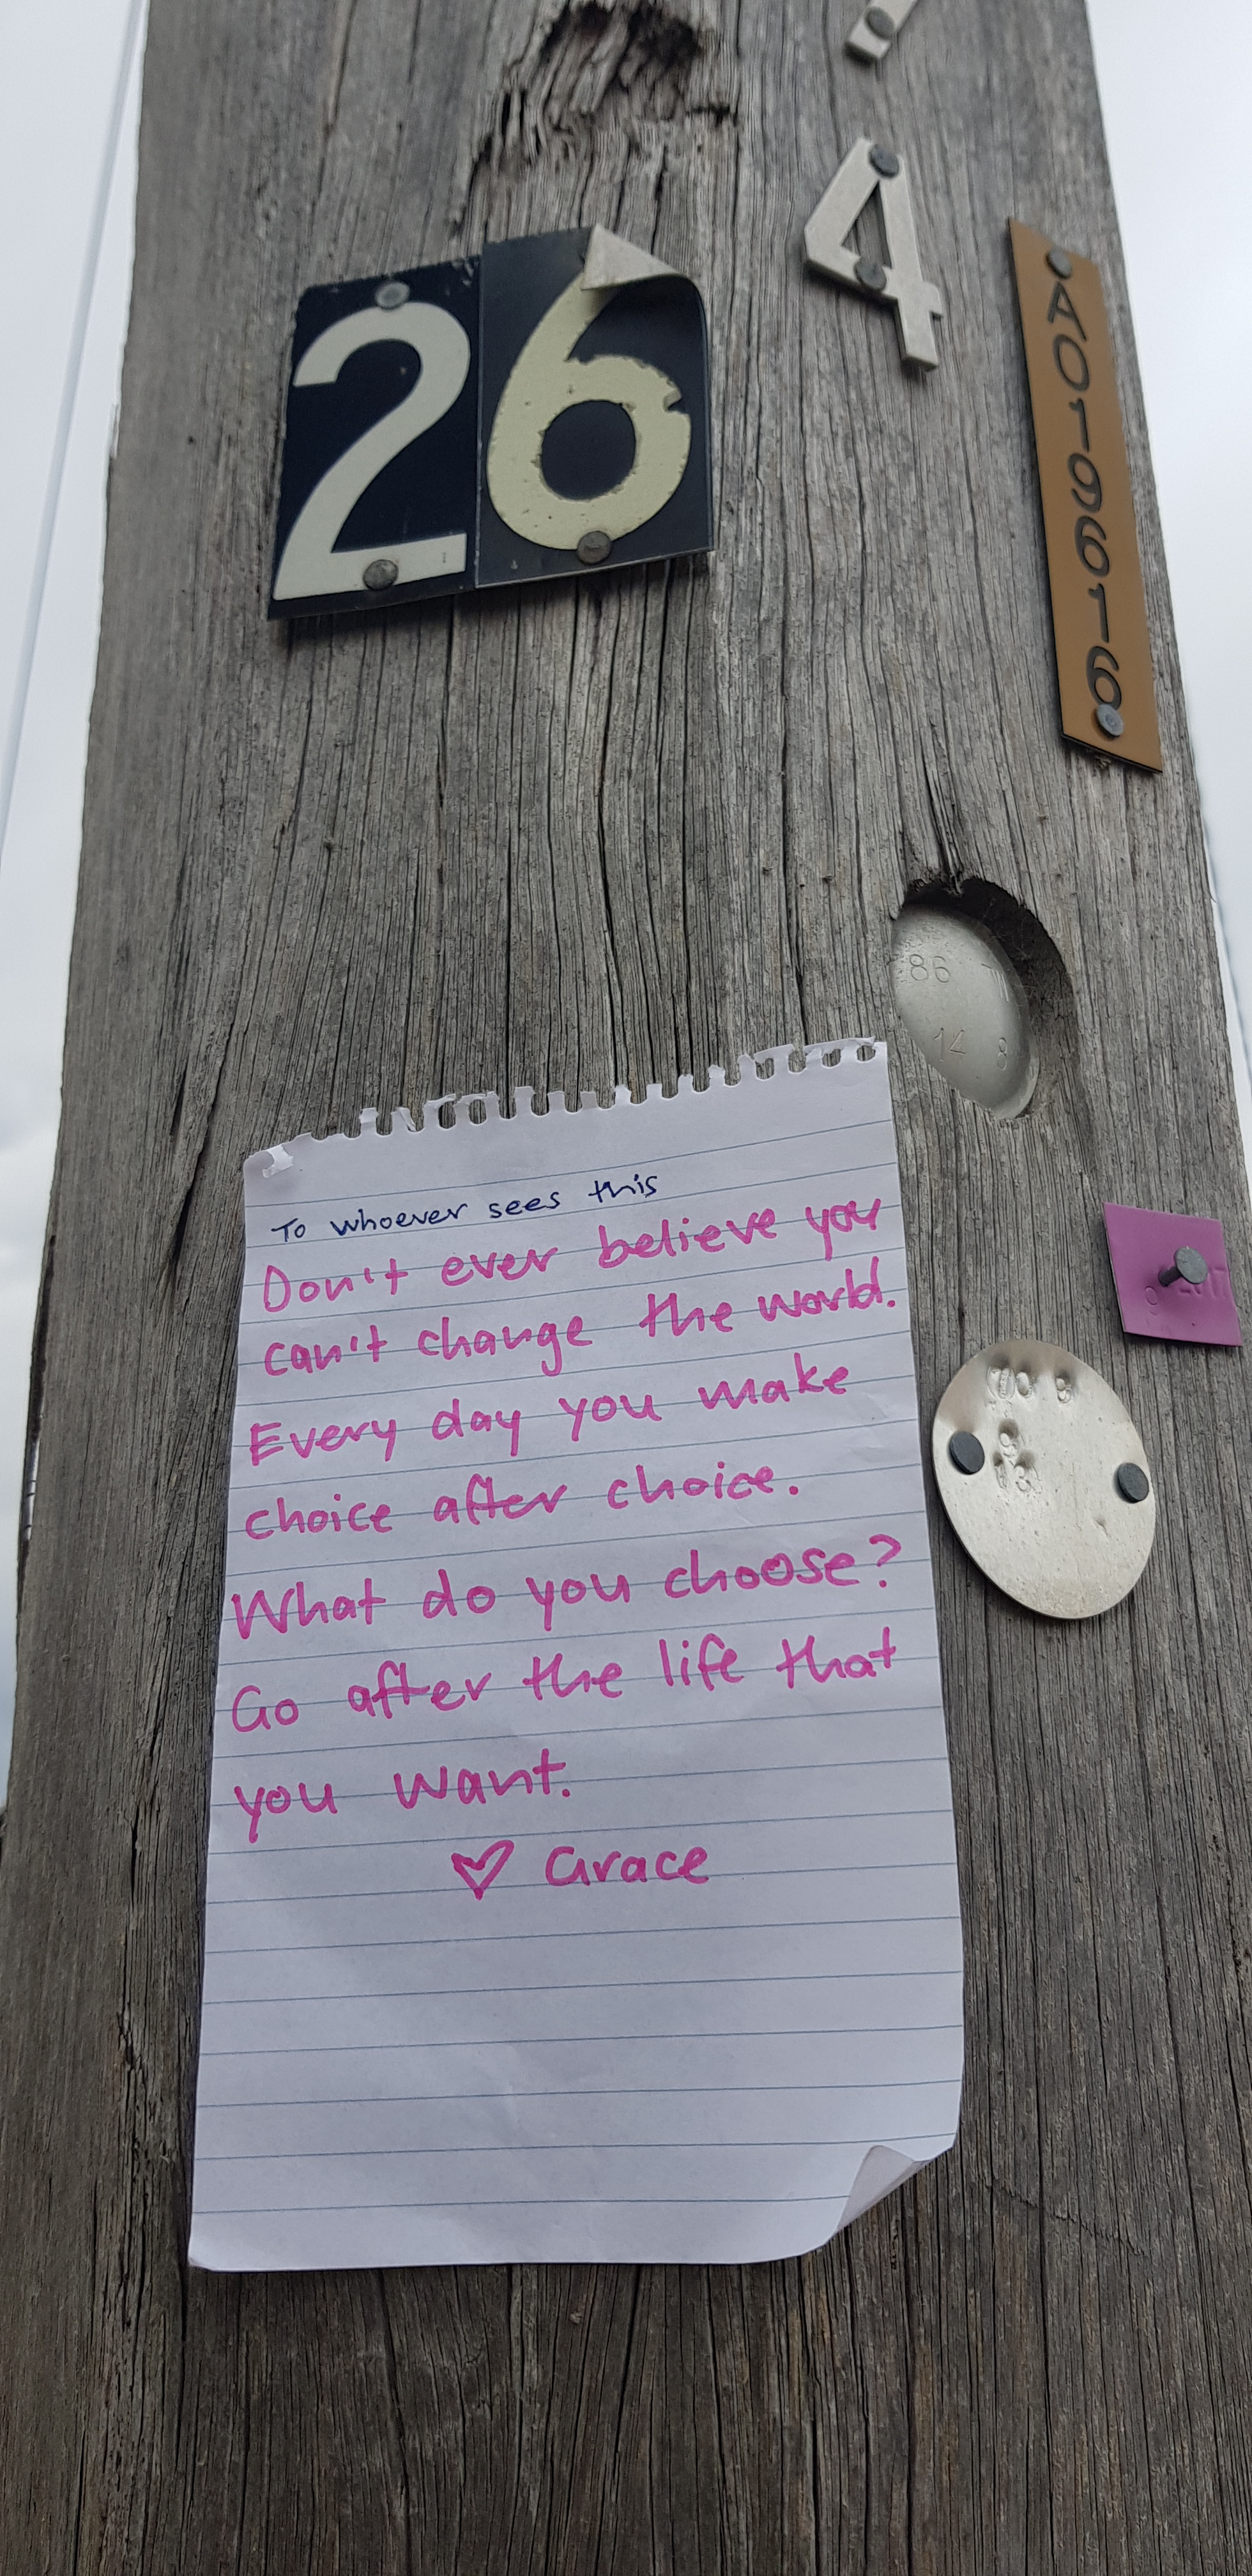 4
26
A019616
86 71
14 8
To whoever sees this
Don't ever believe you
can't change the world.
Every day you make
choice after choice.
What do you choose?
Go after the life that
you want.
♡ Grace